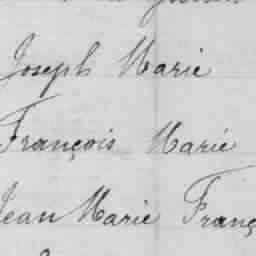 Joseph Marie
François Marie
Jean Marie Franç